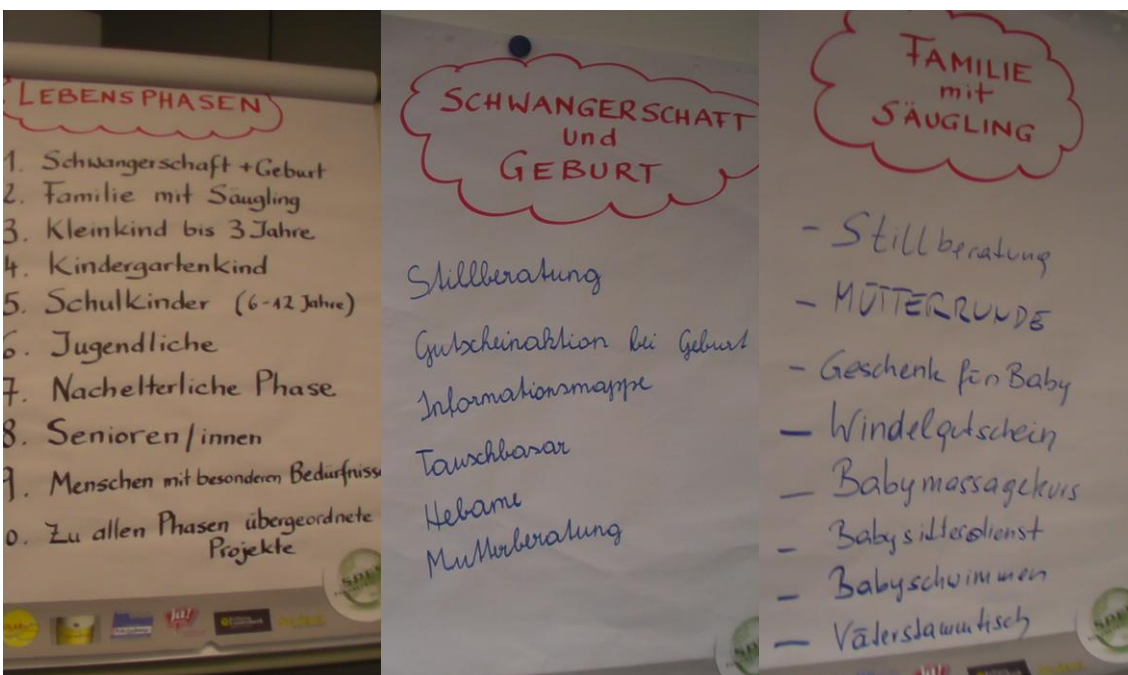 LEBENSPHASEN
1. Schwangerschaft + Geburt
2. Familie mit Säugling
3. Kleinkind bis 3 Jahre
4. Kindergartenkind
5. Schulkinder (6-12 Jahre)
6. Jugendliche
7. Nachelterliche Phase
8. Senioren/innen
9. Menschen mit besonderen Bedürfnisse
0. Zu allen Phasen übergeordnete
Projekte
SCHWANGERSCHAFT
und
GEBURT
Stillberatung
Gutscheinaktion bei Geburt
Informationsmappe
Tauschbasar
Hebame
Mutterberatung
FAMILIE
mit
SÄUGLING
- Stillberatung
- MÜTTERRUNDE
- Geschenk für Baby
- Windelgutschein
- Babymassagekurs
- Babysitterdienst
- Babyschwimmen
- Väterstammtisch